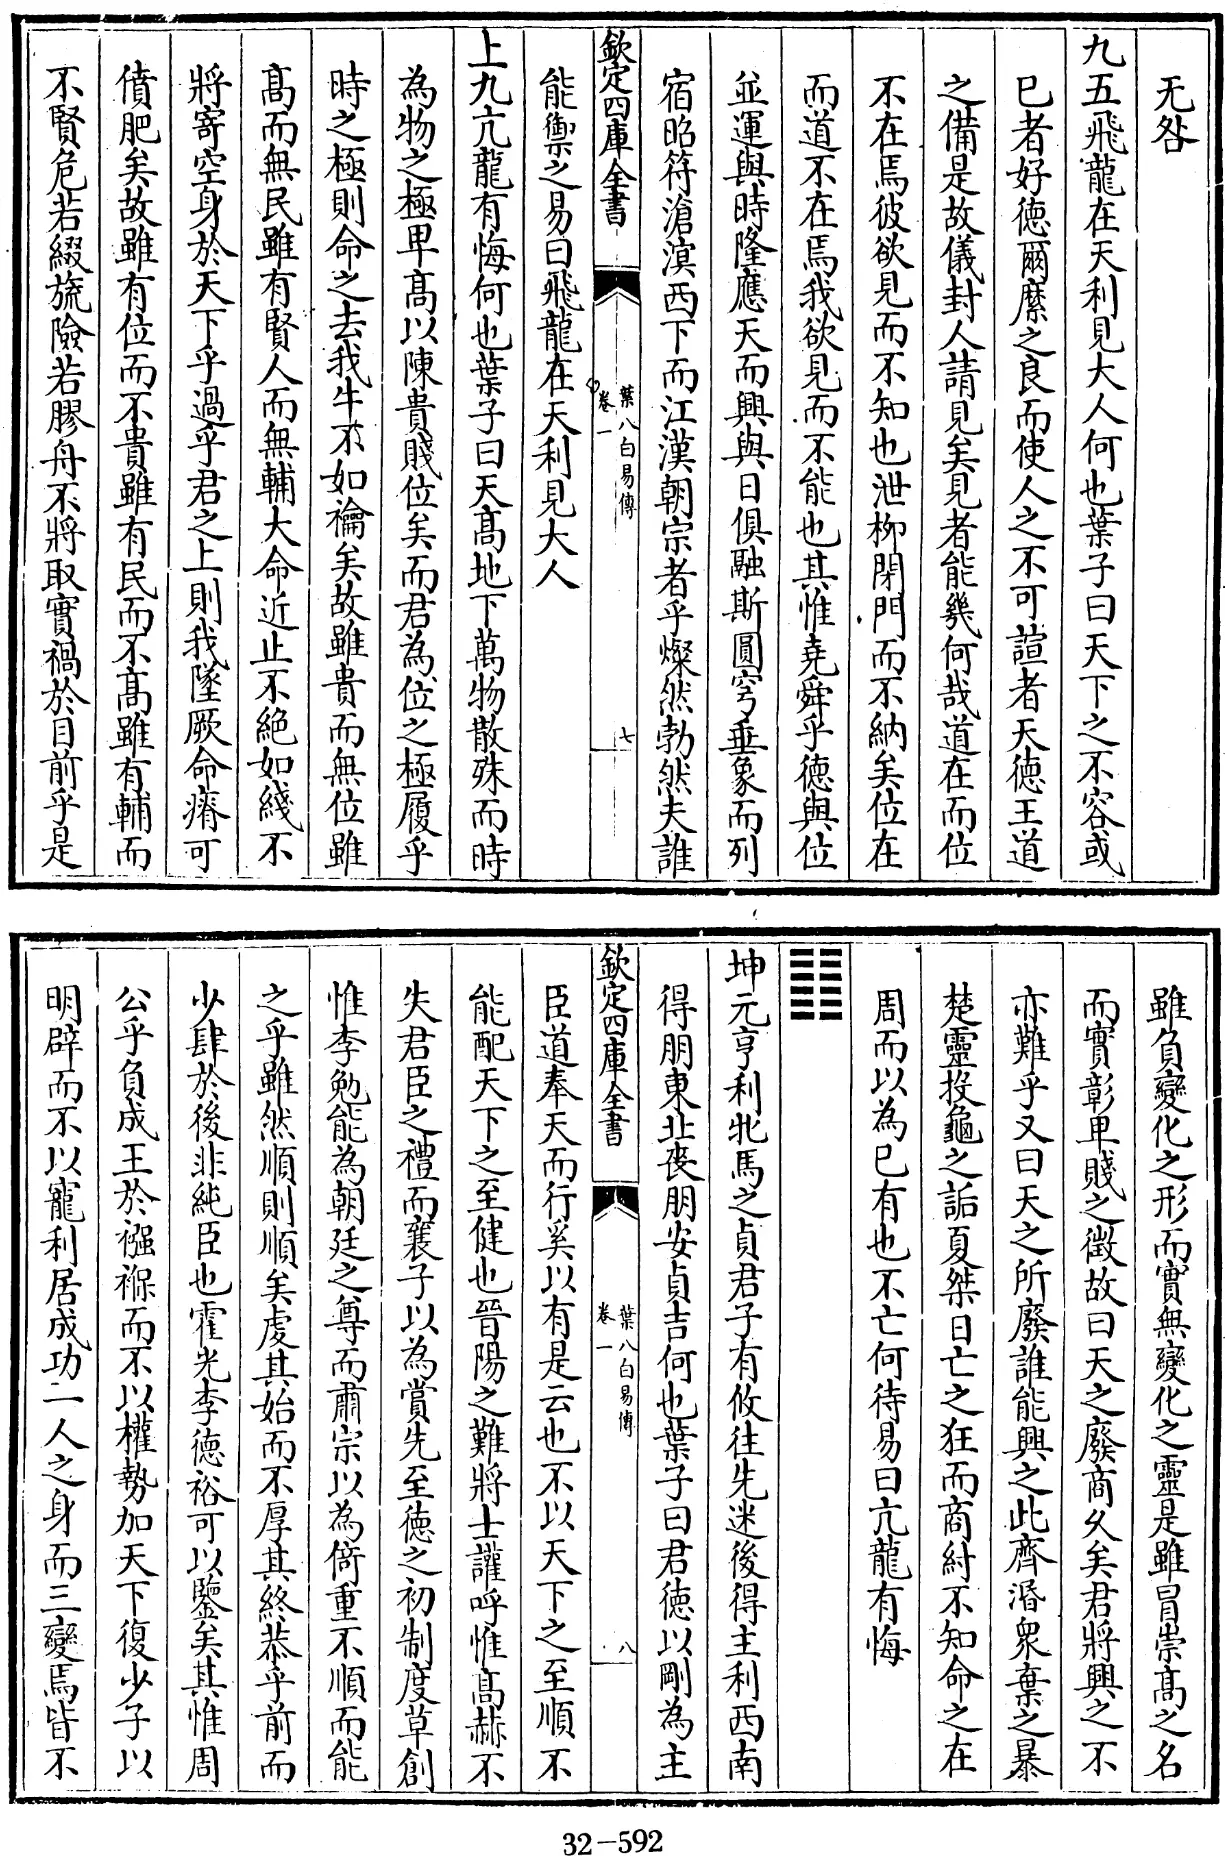 无咎
九五飛龍在天利見大人何也葉子曰天下之不容或
已者好徳爾縻之良而使人之不可諠者天徳王道
之備是故儀封人請見矣見者能幾何哉道在而位
不在焉彼欲見而不知也泄栁閉門而不納矣位在
而道不在焉我欲見而不能也其惟堯舜乎徳與位
並運與時隆應天而興與日俱融斯圓穹垂象而列
宿昭符滄溟西下而江漢朝宗者乎燦然勃然夫誰
欽定四庫全書
葉八白易傳
卷一
七
能禦之易曰飛龍在天利見大人
上九亢龍有悔何也葉子曰天髙地下萬物散殊而時
為物之極卑髙以陳貴賤位矣而君為位之極履乎
時之極則命之去我牛不如禴矣故雖貴而無位雖
髙而無民雖有賢人而無輔大命近止不絶如綫不
將寄空身於天下乎過乎君之上則我墜厥命瘠可
僨肥矣故雖有位而不貴雖有民而不髙雖有輔而
不賢危若綴旒險若膠舟不將取實禍於目前乎是
雖負變化之形而實無變化之靈是雖冒崇髙之名
而實彰卑賤之徵故曰天之廢商久矣君將興之不
亦難乎又曰天之所廢誰能興之此齊湣衆棄之暴
楚靈投龜之詬夏桀日亡之狂而商紂不知命之在
周而以為已有也不亡何待易曰亢龍有悔
䷁
坤元亨利牝馬之貞君子有攸往先迷後得主利西南
得朋東北喪朋安貞吉何也葉子曰君徳以剛為主
欽定四庫全書
葉八白易傳
卷一
八
臣道奉天而行奚以有是云也不以天下之至順不
能配天下之至健也晉陽之難將士讙呼惟髙赫不
失君臣之禮而襄子以為賞先至徳之初制度草創
惟李勉能為朝廷之尊而肅宗以為倚重不順而能
之乎雖然順則順矣虔其始而不厚其終恭乎前而
少肆於後非純臣也霍光李徳裕可以鑒矣其惟周
公乎負成王於襁褓而不以權勢加天下復少子以
明辟而不以寵利居成功二人之身而三變焉皆不
32-592